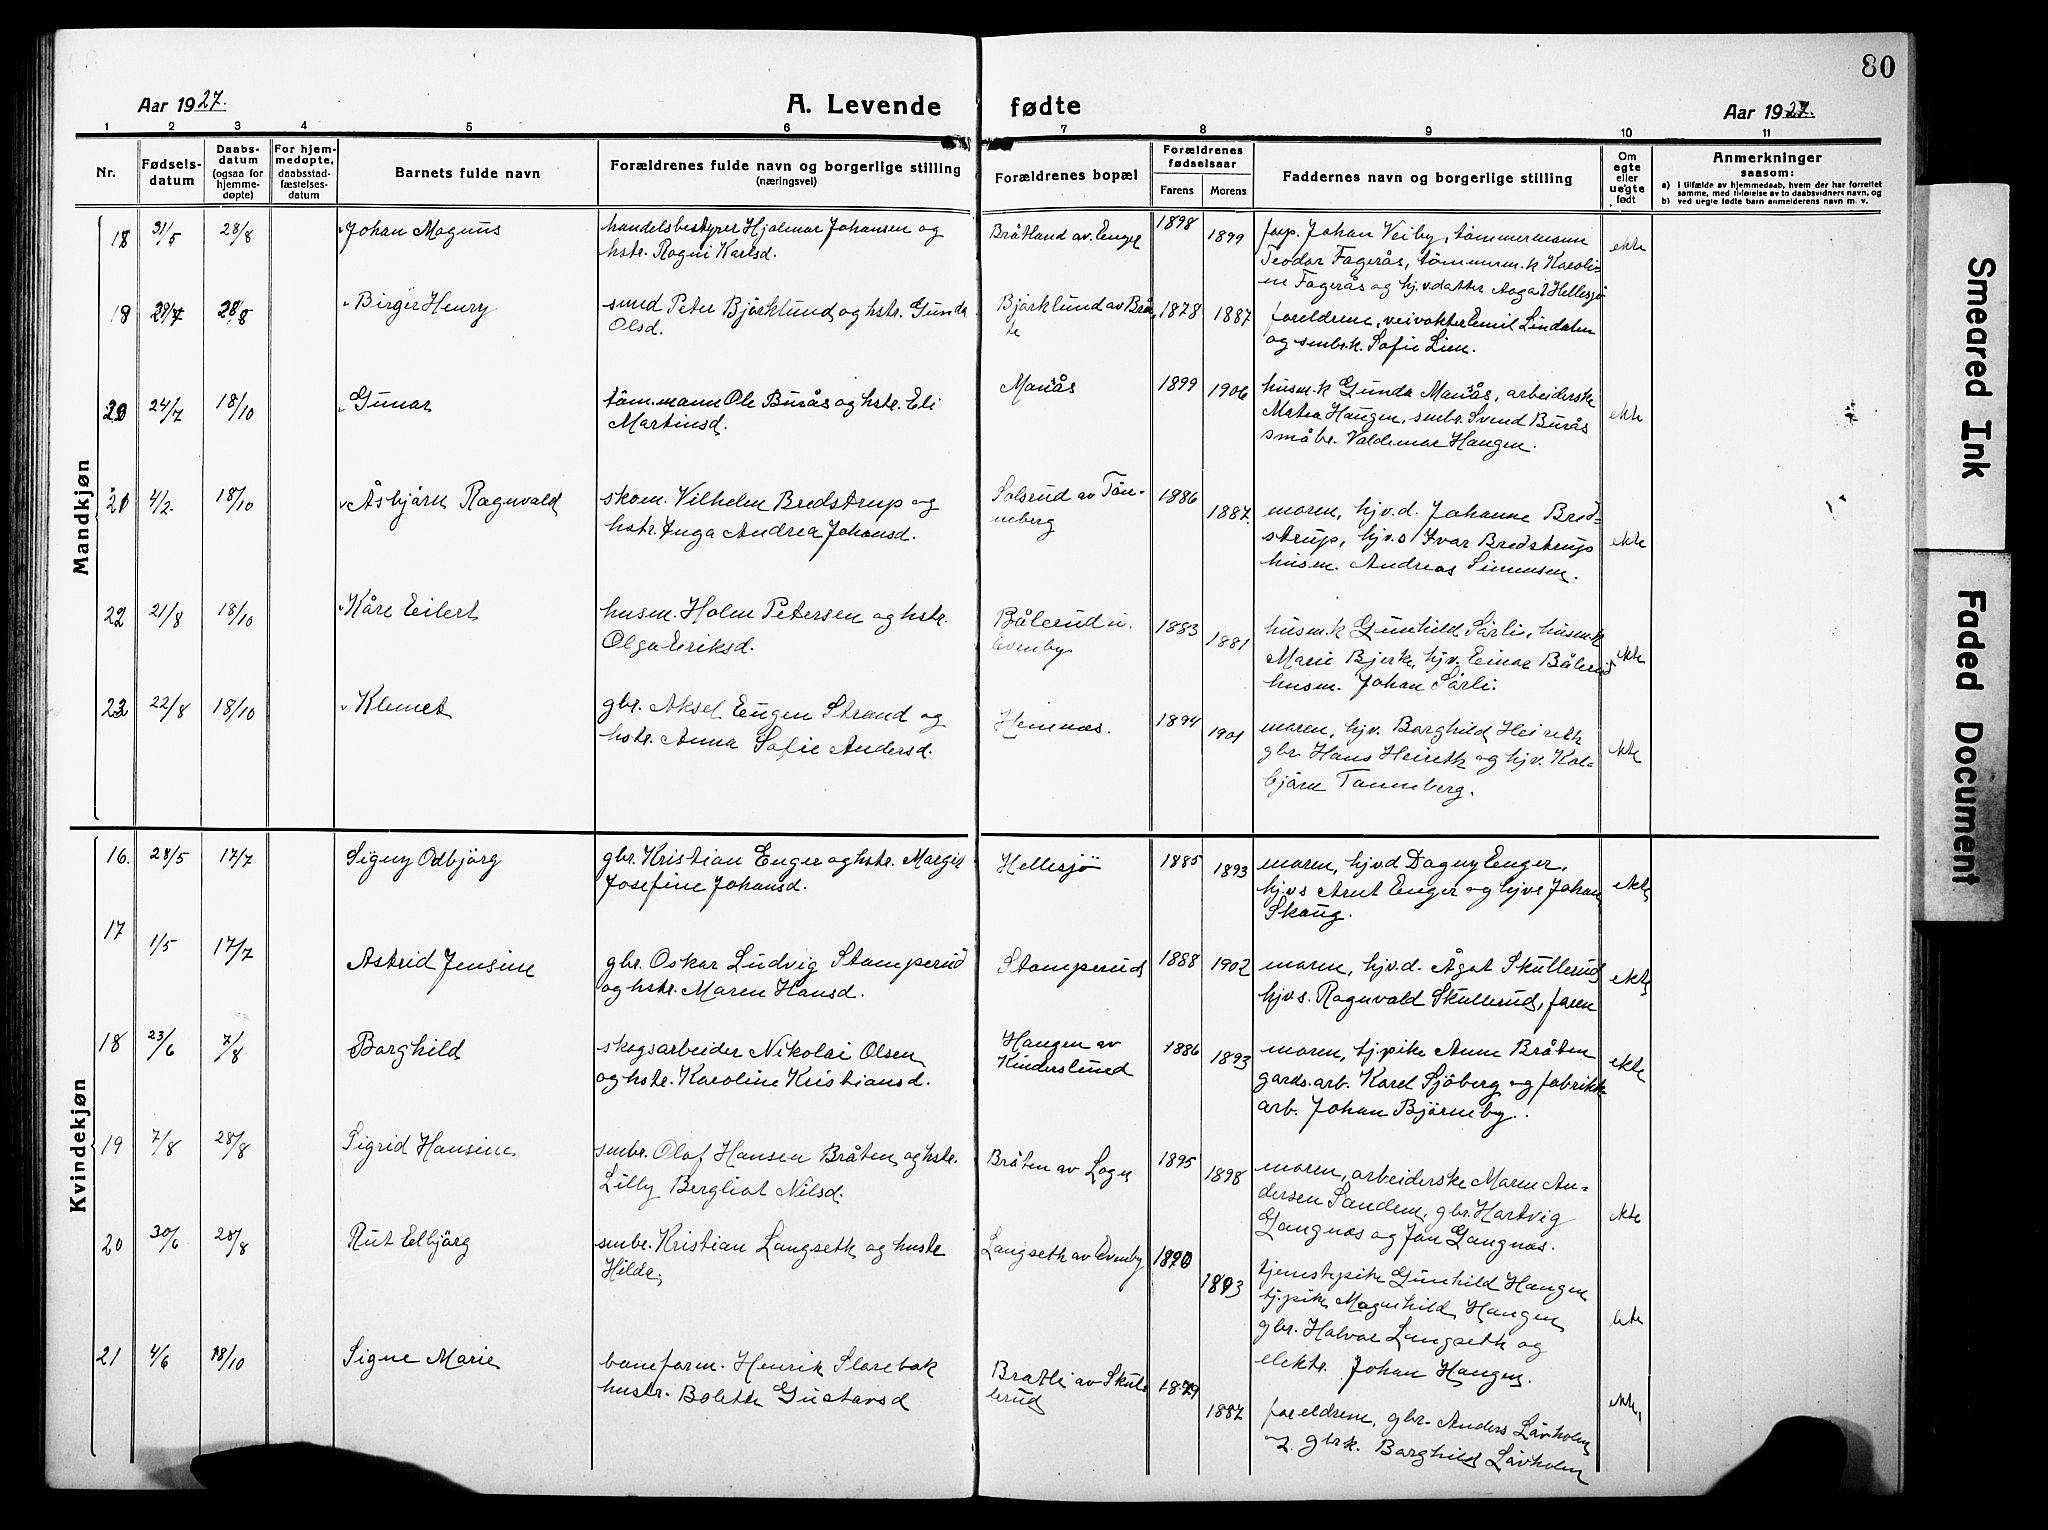 80
Aar 1927.
A. Levende fødte
Aar 1927.
1 2 3 4 5 6 7 8 9 10 11
Nr.
Fødsels-
datum
Daabs-
datum
(ogsaa for
hjemme-
døpte)
For hjem-
medøpte,
daabsstad-
fæstelses-
datum
Barnets fulde navn
Forældrenes fulde navn og borgerlige stilling
(næringsvei)
Forældrenes bopæl
Forældrenes
fødselsaar
Farens
Morens
Faddernes navn og borgerlige stilling
Om
egte
eller
uegte
født
Anmerkninger
saasom:
a) i tilfælde av hjemmedaab, hvem der har forrettet
samme, med tilføielse av to daabsvidners navn, og
b) ved uegte fødte barn anmelderens navn m. v.
Mandkjøn
18 31/5 28/8 Johan Magnus
handelsbestyrer Hjalmar Johansen og
hstr. Ragni Karlsd.
Bråtland av Enger 1898 1899
forp. Johan Veiby, tømmermann
Teodor Fagerås, tømmerm.k Karoli-
ne Fagerås og hj.v datter Aagot Hellesjø
ekte
19 29/7 28/8 Birger Henry
smed Peter Bjørklund og hstr. Gunda
Olsd.
Bjørklund av Brå-
te
1878 1887
foreldrene, veivokter Emil Lindalen
og smbr.k. Sofie Lien.
20 24/7 18/10 Gunar
töm.mann Ole Burås og hstr. Eli
Martinsd.
Manås 1899 1906
husm.k Gunda Manås, arbeiderske
Matea Haugen, smbr. Svend Burås
småbr. Valdemar Haugen.
ekte
21 4/2 18/10 Åsbjørn Ragnvald
skom. Vilhelm Bredstrup og
hstr. Inga Andrea Johansd.
Solsrud av Tön-
neberg
1886 1887.
moren, hjv.d. Johanne Bred-
strup, hjv.s Ivar Bredstrup
husm. Andreas Simensen.
ekte
22 21/8 18/10 Kåre Eilert
husm. Holm Petersen og hstr.
Olga Eriksd.
Bålerud u.
Evenby
1883 1881
husm.k Gunhild Sårli, husm.k
Marie Bjerke, hjv. Einar Bålerud
husm. Johan Sårli.
ekte
23 22/8 18/10 Klemet
gbr. Aksel Eugen Strand og
hstr. Anna Sofie Andersd.
Hemnes. 1894 1901
moren, hjv. Borghild Heireth
gbr. Hans Heireth og hjv. Kol-
bjørn Tanneberg.
ekte
Kvindekjøn
16. 28/5 17/7 Signy Odbjörg
gbr. Kristian Enger og hstr. Margit
Josefine Johansd.
Hellesjö 1885 1893
moren, hjv.d Dagny Enger,
hjv.s Arnt Enger og hjvs Johan
Skaug.
ekte
17 1/5 17/7 Astrid Jensine
gbr. Oskar Ludvig Stamperud
og hstr. Maren Hansd.
Stamperud 1888 1902
moren, hjv.d. Ågot Skullerud
hjv.s. Ragnvald Skullerud, faren
ekte
18 23/6 7/8 Borghild
skogsarbeider Nikolai Olsen
og hstr. Karoline Kristiansd.
Haugen av
Kinderslund
1886 1893
moren, tj.pike Anne Bråten
gards.arb. Karel Sjöberg og fabrikk-
arb. Johan Bjørneby.
ekte
19 7/8 28/8 Sigrid Hansine
smbr. Olaf Hansen Bråten og hstr.
Lilly Bergliot Nilsd.
Bråten av Logn 1895 1898
moren, arbeiderske Maren An-
dersen Sandem, gbr. Hartvig
Gangnæs og Jon Gangnæs.
ekte
20 30/6 28/8 Rut Elbjörg
smbr. Kristian Langseth og hustr
Hilda,
Langseth av Evenby 1890 1893
tjenestepike Gunhild Haugen
tj.pike Magnhild Haugen
gbr. Halvor Langseth og
elektr. Johan Haugen.
ekte
21 4/6 18/10 Signe Marie
baneform. Henrik Slorebak
hustr. Bolette Gustavsd
Bratli av Skul-
lerud
1879 1887
foreldrene, gbr. Anders Låvholm
og gbrk. Borghild Låvholm
ekte,
Smeared Ink
Faded Document